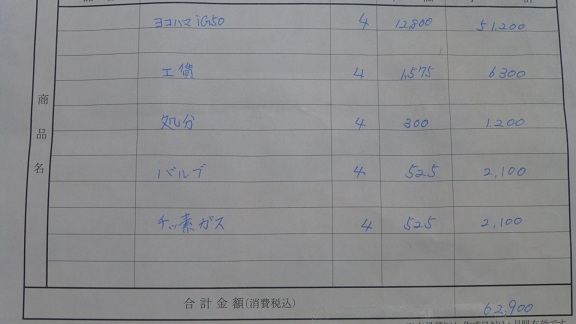 ヨコハマ iG50 4 12,800 51,200
工賃 4 1,575 6300
処分 4 300 1,200
バルブ 4 525 2,100
チッ素ガス 4 525 2,100
商品名
合計金額(消費税込) 62,900